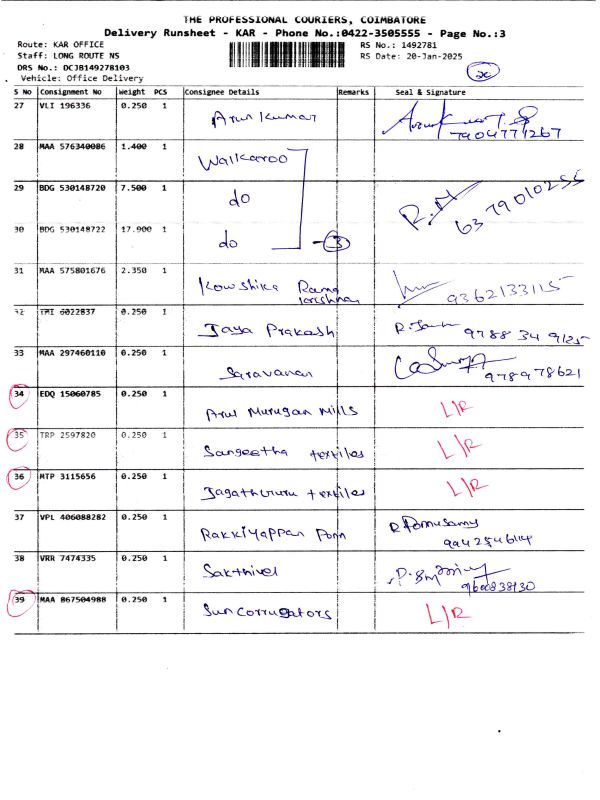 THE PROFESSIONAL COURIERS, COIMBATORE
Delivery Runsheet - KAR - Phone No.:0422-3505555 - Page No.:3
Route: KAR OFFICE RS No.: 1492781
Staff: LONG ROUTE NS RS Date: 20-Jan-2025
DRS No.: DCJB149278103
Vehicle: Office Delivery
S No Consignment No Weight PCS Consignee Details Remarks Seal & Signature
27 VLI 196336 0.250 1 Arun Kumar
7904771267
28 MAA 576340086 1.400 1 Walkaroo
29 BDG 530148720 7.500 1 do R.M
6379010255
30 BDG 530148722 17.900 1 do 3
31 MAA 575801676 2.350 1 Kowshika Rama
krishnan 9362133115
32 TMI 6022837 0.250 1 Jaya Prakash 9788 34 9125
33 MAA 297460110 0.250 1 Saravanan 978978621
34 EDQ 15060785 0.250 1 Arul Murugan Mills L/R
35 TRP 2597820 0.250 1 Sangeetha textiles L/R
36 MTP 3115656 0.250 1 Jagathguru textiles L/R
37 VPL 406088282 0.250 1 Rakkiyappan Ponn R Ponnusamy
38 VRR 7474335 0.250 1 Sakthivel
9600838130
39 MAA 867504988 0.250 1 Sun Corrugators L/R